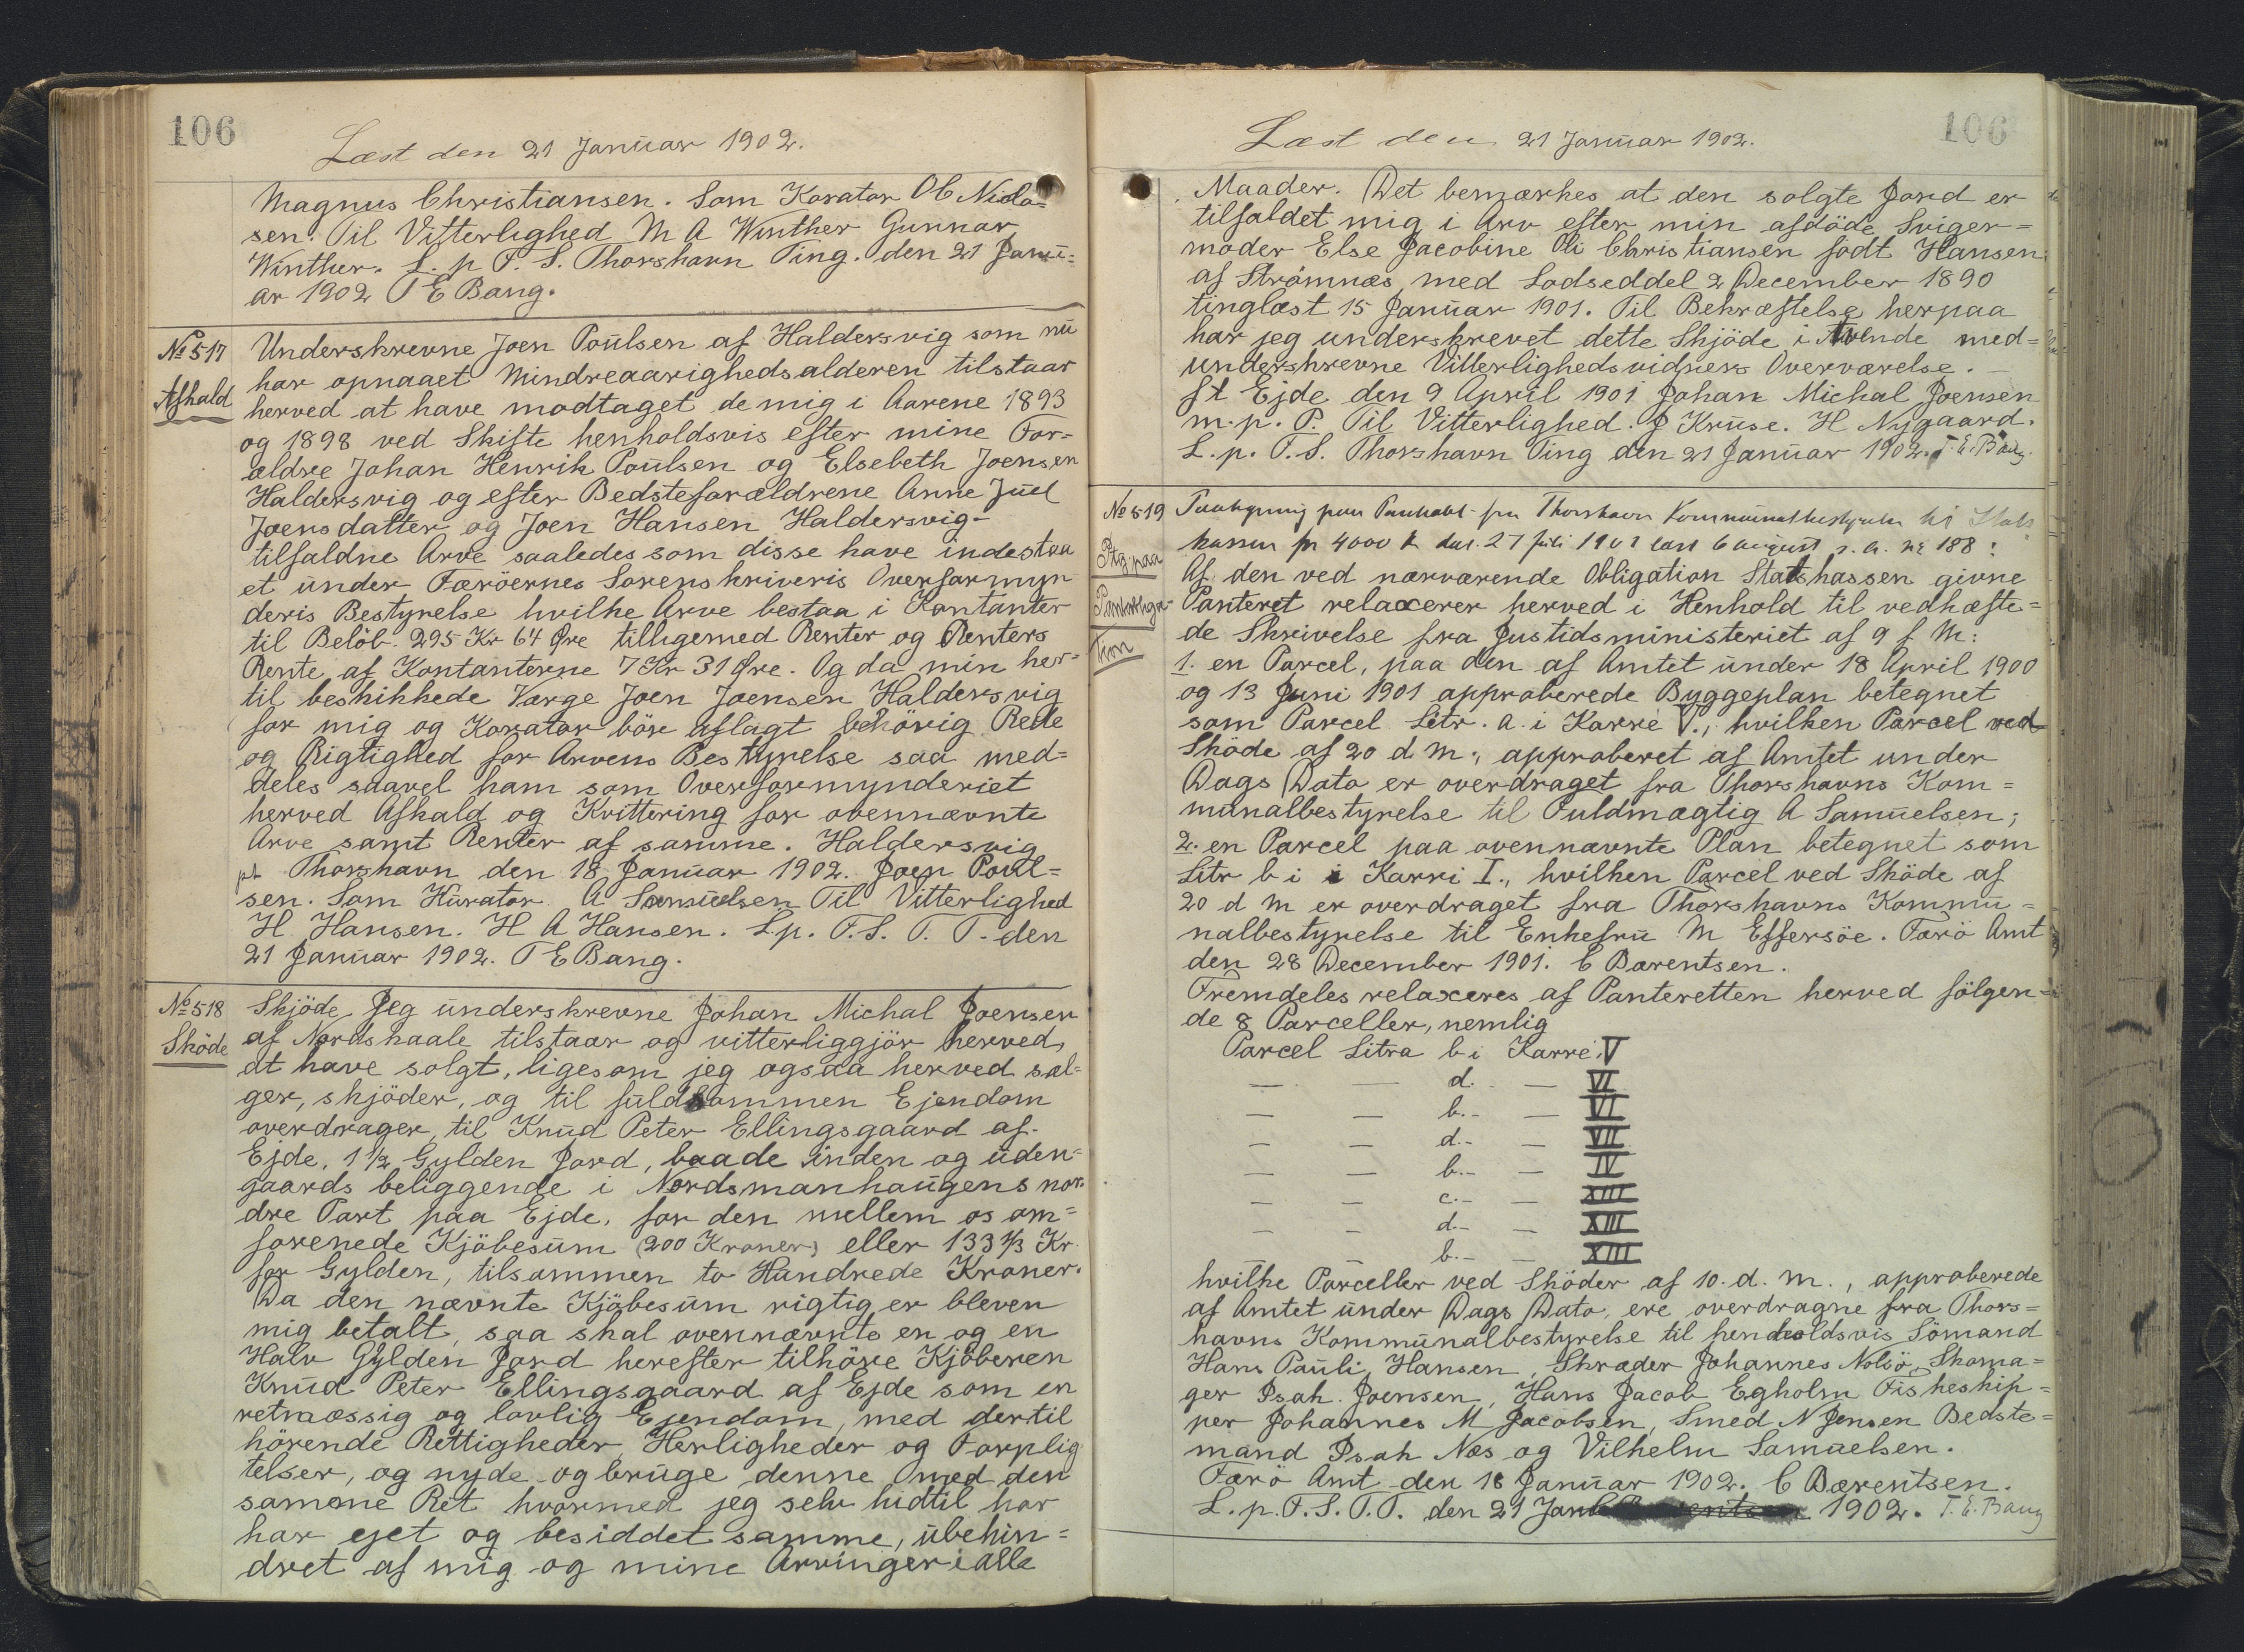 106
Læst den 21 Januar 1902.
Magnus Christiansen. Som Korator Ob Niclo=
sen. Til Vitterlighed M A Winther Gunnar
Winther. L. p F. S. Thorshavn Ting. den 21 Janu=
ar 1902 T E Bang.
No 517
Afkald
Underskrevne Joen Poulsen af Haldersvig som nu
har opnaaet Mindreaarighedsalderen tilstaar
herved at have modtaget de mig i Aarene 1893
og 1898 ved Skifte henholdsvis efter mine For=
ældre Johan Henrik Poulsen og Elsebeth Joensen
Haldersvig og efter Bedsteforældrene Anne Juel
Joensdatter og Joen Hansen Haldersvig-
tilfaldne Arve saaledes som disse have indestaa
et under Færöernes Sorenskriveris Overformyn
deris Bestyrelse hvilke Arve bestaa i Kontanter
til Belöb. 295 Kr 64 Øre tilligemed Renter og Renters
Rente af Kontanterne 7 Kr 31 Øre. Og da min her=
til beskikkede Værge Joen Joensen Haldersvig
for mig og Korator bör aflagt behörig Rede
og Rigtighed for Arvens Bestyrelse saa med=
deles saavel ham som Overformynderiet
herved Afkald og Kvittering for ovennævnte
Arve samt Renter af samme. Haldersvig
pt Thorshavn den 18 Januar 1902. Joen Poul=
sen. Som Kurator A Samuelsen Til Vitterlighed
H. Hansen. H A Hansen. L.p. F.S. T. T. den
21 Januar 1902. T E Bang.
No 518
Sköde
Skjöde Jeg underskrevne Johan Michal Joensen
af Nordskaale tilstaar og vitterliggjör herved,
at have solgt, ligesom jeg ogsaa herved sæl=
ger, skjöder, og til fuldkommen Ejendom
overdrager, til Knud Peter Ellingsgaard af.
Ejde, 1 1/2 Gylden Jord, baade inden og uden=
gaards beliggende i Nordsmanhaugens nor=
dre Part paa Ejde, for den mellem os om=
forenede Kjöbesum (200 Kroner) eller 133 1/3 Kr.
for Gylden, tilsammen to Hundrede Kroner.
Da den nævnte Kjöbesum rigtig er bleven
mig betalt, saa skal ovennævnte en og en
Halv Gylden Jord herefter tilhöre Kjöberen
Knud Peter Ellingsgaard af Ejde som en
retmæssig og lovlig Ejendom, med dertil
hörende Rettigheder, Herligheder og Forplig
telser, og nyde og bruge denne med den
samme Ret hvormed jeg selv hidtil har
har ejet og besiddet samme, ubehin=
dret af mig og mine Arvinger i alle
106
Læst den 21 Januar 1902.
Maader. Det bemærkes at den solgte Jord er
tilfaldet mig i Arv efter min afdöde Sviger=
moder Else Jacobine Oli Christiansen födt Hansen
af Strömnæs, med Lodseddel 2 December 1890
tinglæst 15 Januar 1901. Til Bekræftelse herpaa
har jeg underskrevet dette Skjöde i Tvende med=
underskrevne Vitterlighedsvidners Overværelse.
St Ejde den 9 April 1901 Johan Michal Joensen
m. p. P. Til Vitterlighed. J Kruse. H Nygaard.
L. p. F. S. Thorshavn Ting den 21 Januar 1902. T. E. Bang.
No 519
Ptg paa
Pantobliga-
tion
Paategning paa Pantobl. fra Thorshavn Kommunalbestyrelse til Stats
kassen for 4000 K dat. 27 Juli 1901 læst 6 august s. A. No 188:
Af den ved nærværende Obligation Statskassen givne
Panteret relaxerer herved i Henhold til vedhæfte=
de Skrivelse fra Justidsministeriet af 9 f M:
1. en Parcel, paa den af Amtet under 18 April 1900
og 13 Juni 1901 approberede Byggeplan betegnet
som Parcel Litr. a. i Karré V., hvilken Parcel ved
Sköde af 20 d. M., approberet af Amtet under
Dags Dato er overdraget fra Thorshavns Kom=
munalbestyrelse til Fuldmægtig A Samuelsen;
2. en Parcel paa ovennævnte Plan betegnet som
Litr b i i Karri I., hvilken Parcel ved Sköde af
20 d M er overdraget fra Thorshavns Kommu=
nalbestyrelse til Enkefru M Effersöe. Færö Amt
den 28 December 1901. C Bærentsen.
Fremdeles relaxeres af Panteretten herved fölgen=
de 8 Parceller, nemlig
Parcel Litra b i Karré V
— — d. — VI
— — b. — VI
— — d. — VII
— — b. — IV
— — c. — XIII
— — d. — XIII
— — b. — XIII
hvilke Parceller ved Sköder af 10. d. M., approberede
af Amtet under Dags Dato, ere overdragne fra Thors=
havns Kommunalbestyrelse til henholdsvis Sömand
Hans Pauli Hansen, Skræder Johannes Nolsö, Skoma=
ger Isak Joensen, Hans Jacob Egholm Fiskeskip=
per Johannes M Jacobsen, Smed N Jensen Bedste=
mand Isak Næs og Vilhelm Samuelsen.
Færö Amt den 18 Januar 1902. C Bærentsen.
L. p. F. S. T. T. den 21 Jan 1902. T. E. Bang